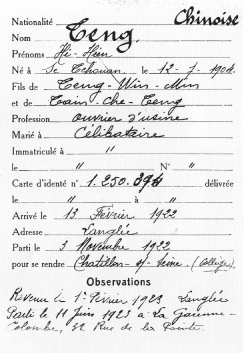 Nationalité Chinoise
Nom Teng.
Prénoms Hi-Hien
Né à Se Tchouan, le 12-7-1904
Fils de Teng-Win-Min
et de Tain-Che-Teng
Profession ouvrier d'usine
Marié à Célibataire
Immatriculé à "
le " N° "
Carte d'identé n° 1.250.394 délivrée
le " à "
Arrivé le 13 Février 1922
Adresse Langlée
Parti le 3 Novembre 1922
pour se rendre Chatillon-s/-Seine (Collège).
Observations
Revenu le 1er Février 1923 Langlée
Parti le 11 Juin 1923 à La Garenne-
Colombe, 39 Rue de la Pointe.